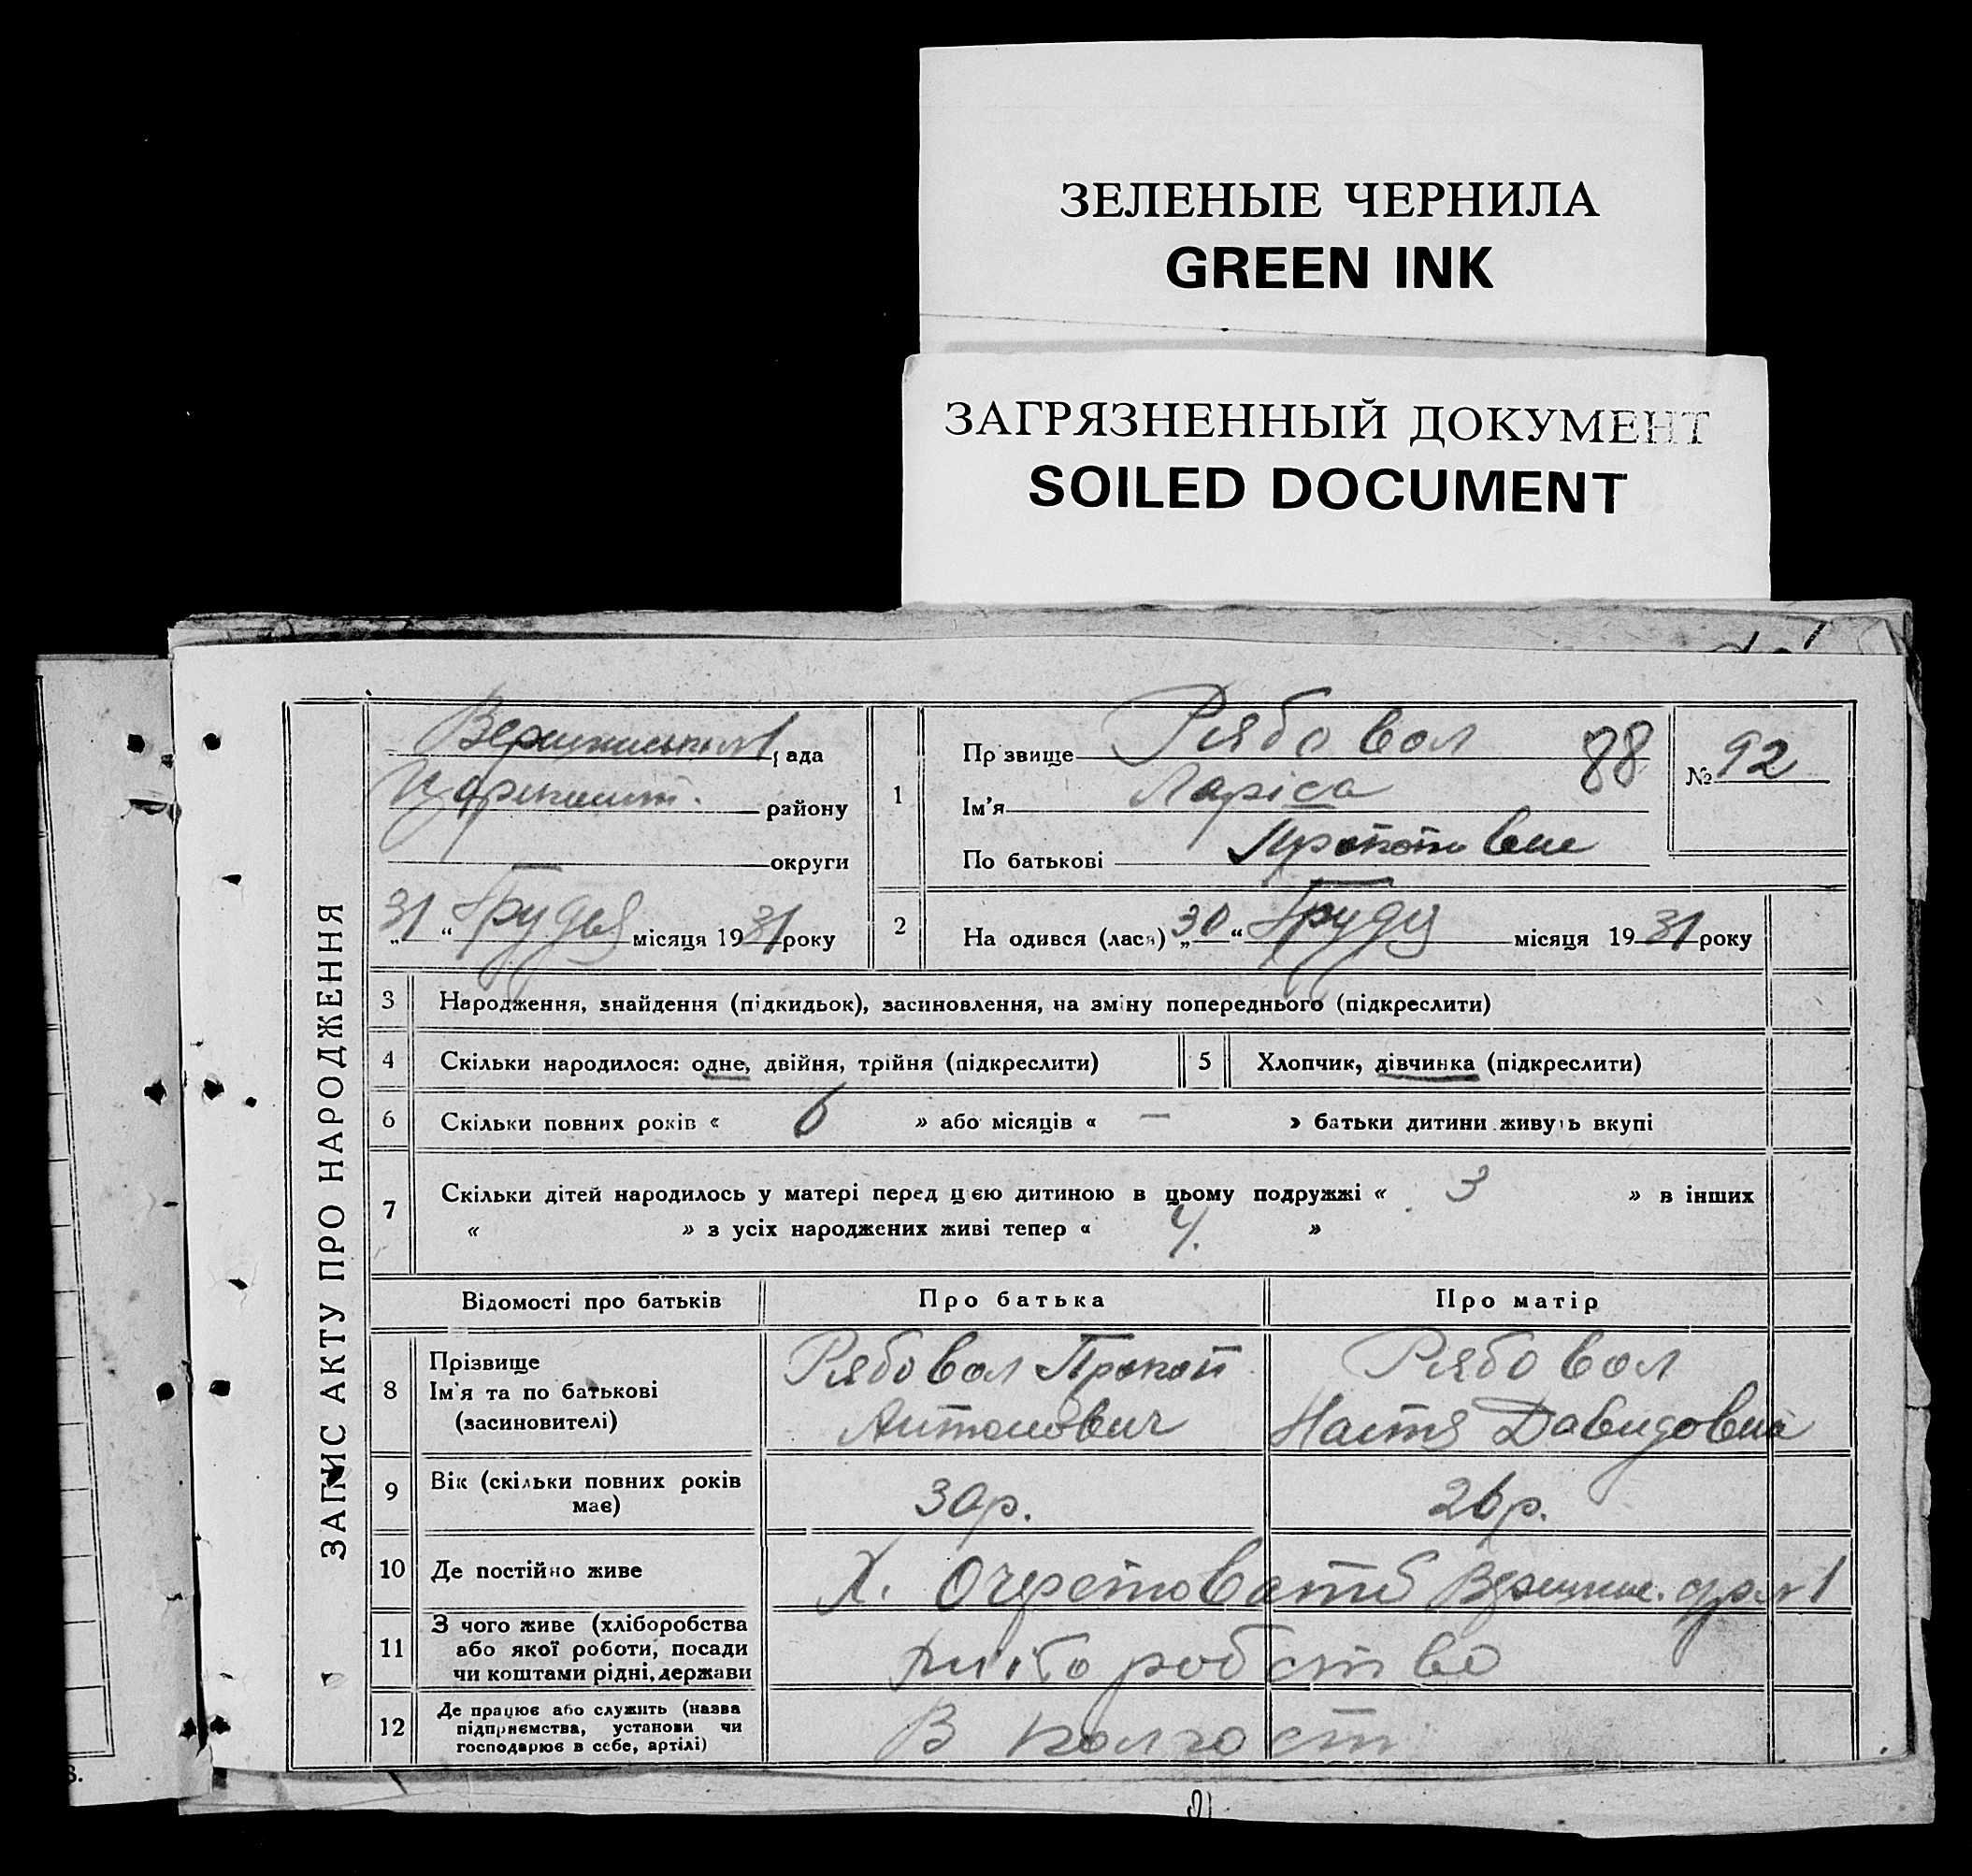 ЗЕЛЕНЫЕ ЧЕРНИЛА
GREEN INK
ЗАГРЯЗНЕННЫЙ ДОКУМЕНТ
SOILED DOCUMENT
ЗАПИС АКТУ ПРО НАРОДЖЕННЯ
рада
району
округи
„31“ Грудня місяця 1931 року
1
Прізвище Рябовол 88
№ 92
Ім'я Ларіса
По батькові
2 На одився (лася) „30“ Грудня місяця 1931 року
3 Народження, знайдення (підкидьок), засиновлення, на зміну попереднього (підкреслити)
4 Скільки народилося: одне, двійня, трійня (підкреслити)
5 Хлопчик, дівчинка (підкреслити)
6 Скільки повних років « 6 » або місяців « — » батьки дитини живуть вкупі
7 Скільки дітей народилось у матері перед цією дитиною в цьому подружжі « 3 » в інших
« » з усіх народжених живі тепер « 4. »
Відомості про батьків Про батька Про матір
8 Прізвище
Ім'я та по батькові
(засиновителі)
Рябовол Прокоп
Антонович
Рябовол
Настя Давидовна
9 Вік (скільки повних років
має)
30р. 26р.
10 Де постійно живе Х.
11 З чого живе (хліборобства
або якої роботи, посади
чи коштами рідні, держави
хліборобство
12 Де працює або служить (назва
підприємства, установи чи
господарює в себе, артілі)
В колгосп